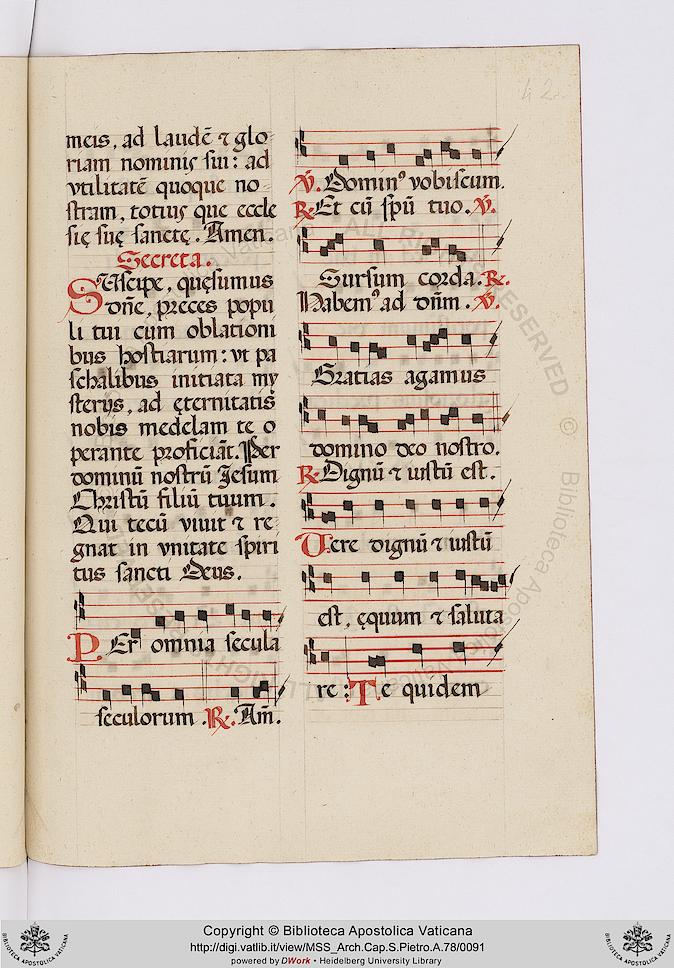 42
meis, ad laudē ⁊ glo
riam nominis sui: ad
vtilitatē quoque no-
stram, totius que eccle
się suę sanctę. Amen.
Secreta.
SUscipe, quęsumus
dn̄e, preces popu
li tui cum oblationi
bus hostiarum: vt pa
schalibus initiata my
sterijs, ad ęternitatis
nobis medelam te o
perante proficiāt. Per
dominū nostrū Iesum
Christū filiū tuum.
Qui tecū viuit ⁊ re
gnat in vnitate spiri
tus sancti Deus.
PEr omnia secula
seculorum. ℟. Am̄.
℣. Domin⁹ vobiscum.
℟. Et cū spū tuo. ℣.
Sursum corda. ℟.
Habem⁹ ad dn̄m. ℣.
Gratias agamus
domino deo nostro.
℟. Dignū ⁊ iustū est.
Uere dignū ⁊ iustū
est, ęquum ⁊ saluta
re: Te quidem
Copyright © Biblioteca Apostolica Vaticana
http://digi.vatlib.it/view/MSS_Arch.Cap.S.Pietro.A.78/0091
powered by DWork • Heidelberg University Library